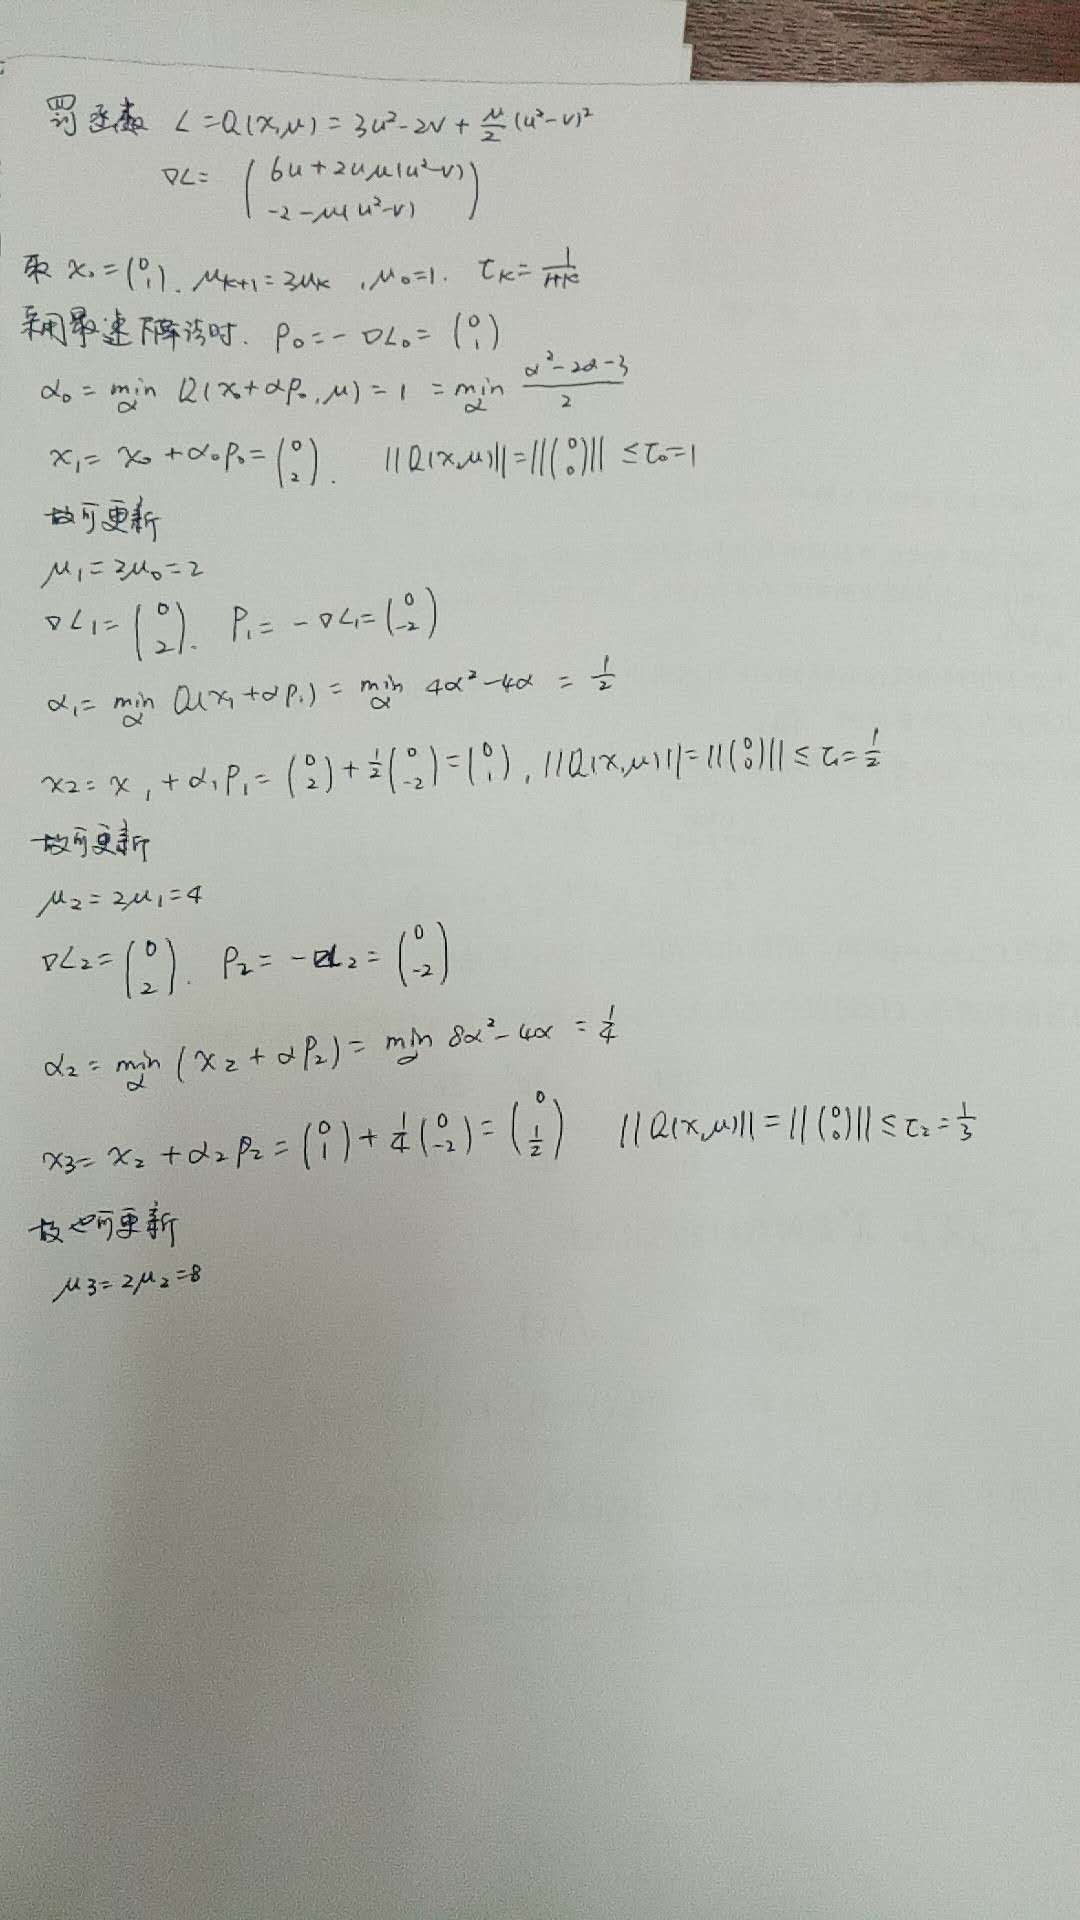 罚函数 L=Q(x,μ)=3u²-2v+μ/2(u²-v)²
∇L= (6u+2uμ(u²-v)
-2-μ(u²-v))
取 x₀=(0 1). μₖ₊₁=2μₖ, μ₀=1. τₖ=1/(1+k)
采用最速下降法时. P₀=-∇L₀=(0 1)
α₀=min_α Q(x₀+αP₀,μ)=1=min_α (α²-2α-3)/2
x₁=x₀+α₀P₀=(0 2). ||Q(x,μ)||=||(0 0)||≤τ₀=1
故可更新
μ₁=2μ₀=2
∇L₁=(0 2). P₁=-∇L₁=(0 -2)
α₁=min_α Q(x₁+αP₁)=min_α 4α²-4α=1/2
x₂=x₁+α₁P₁=(0 2)+1/2(0 -2)=(0 1), ||Q(x,μ)||=||(0 0)||≤τ₁=1/2
故可更新
μ₂=2μ₁=4
∇L₂=(0 2). P₂=-∇L₂=(0 -2)
α₂=min_α (x₂+αP₂)=min_α 8α²-4α=1/4
x₃=x₂+α₂P₂=(0 1)+1/4(0 -2)=(0 1/2) ||Q(x,μ)||=||(0 0)||≤τ₂=1/3
故也可更新
μ₃=2μ₂=8